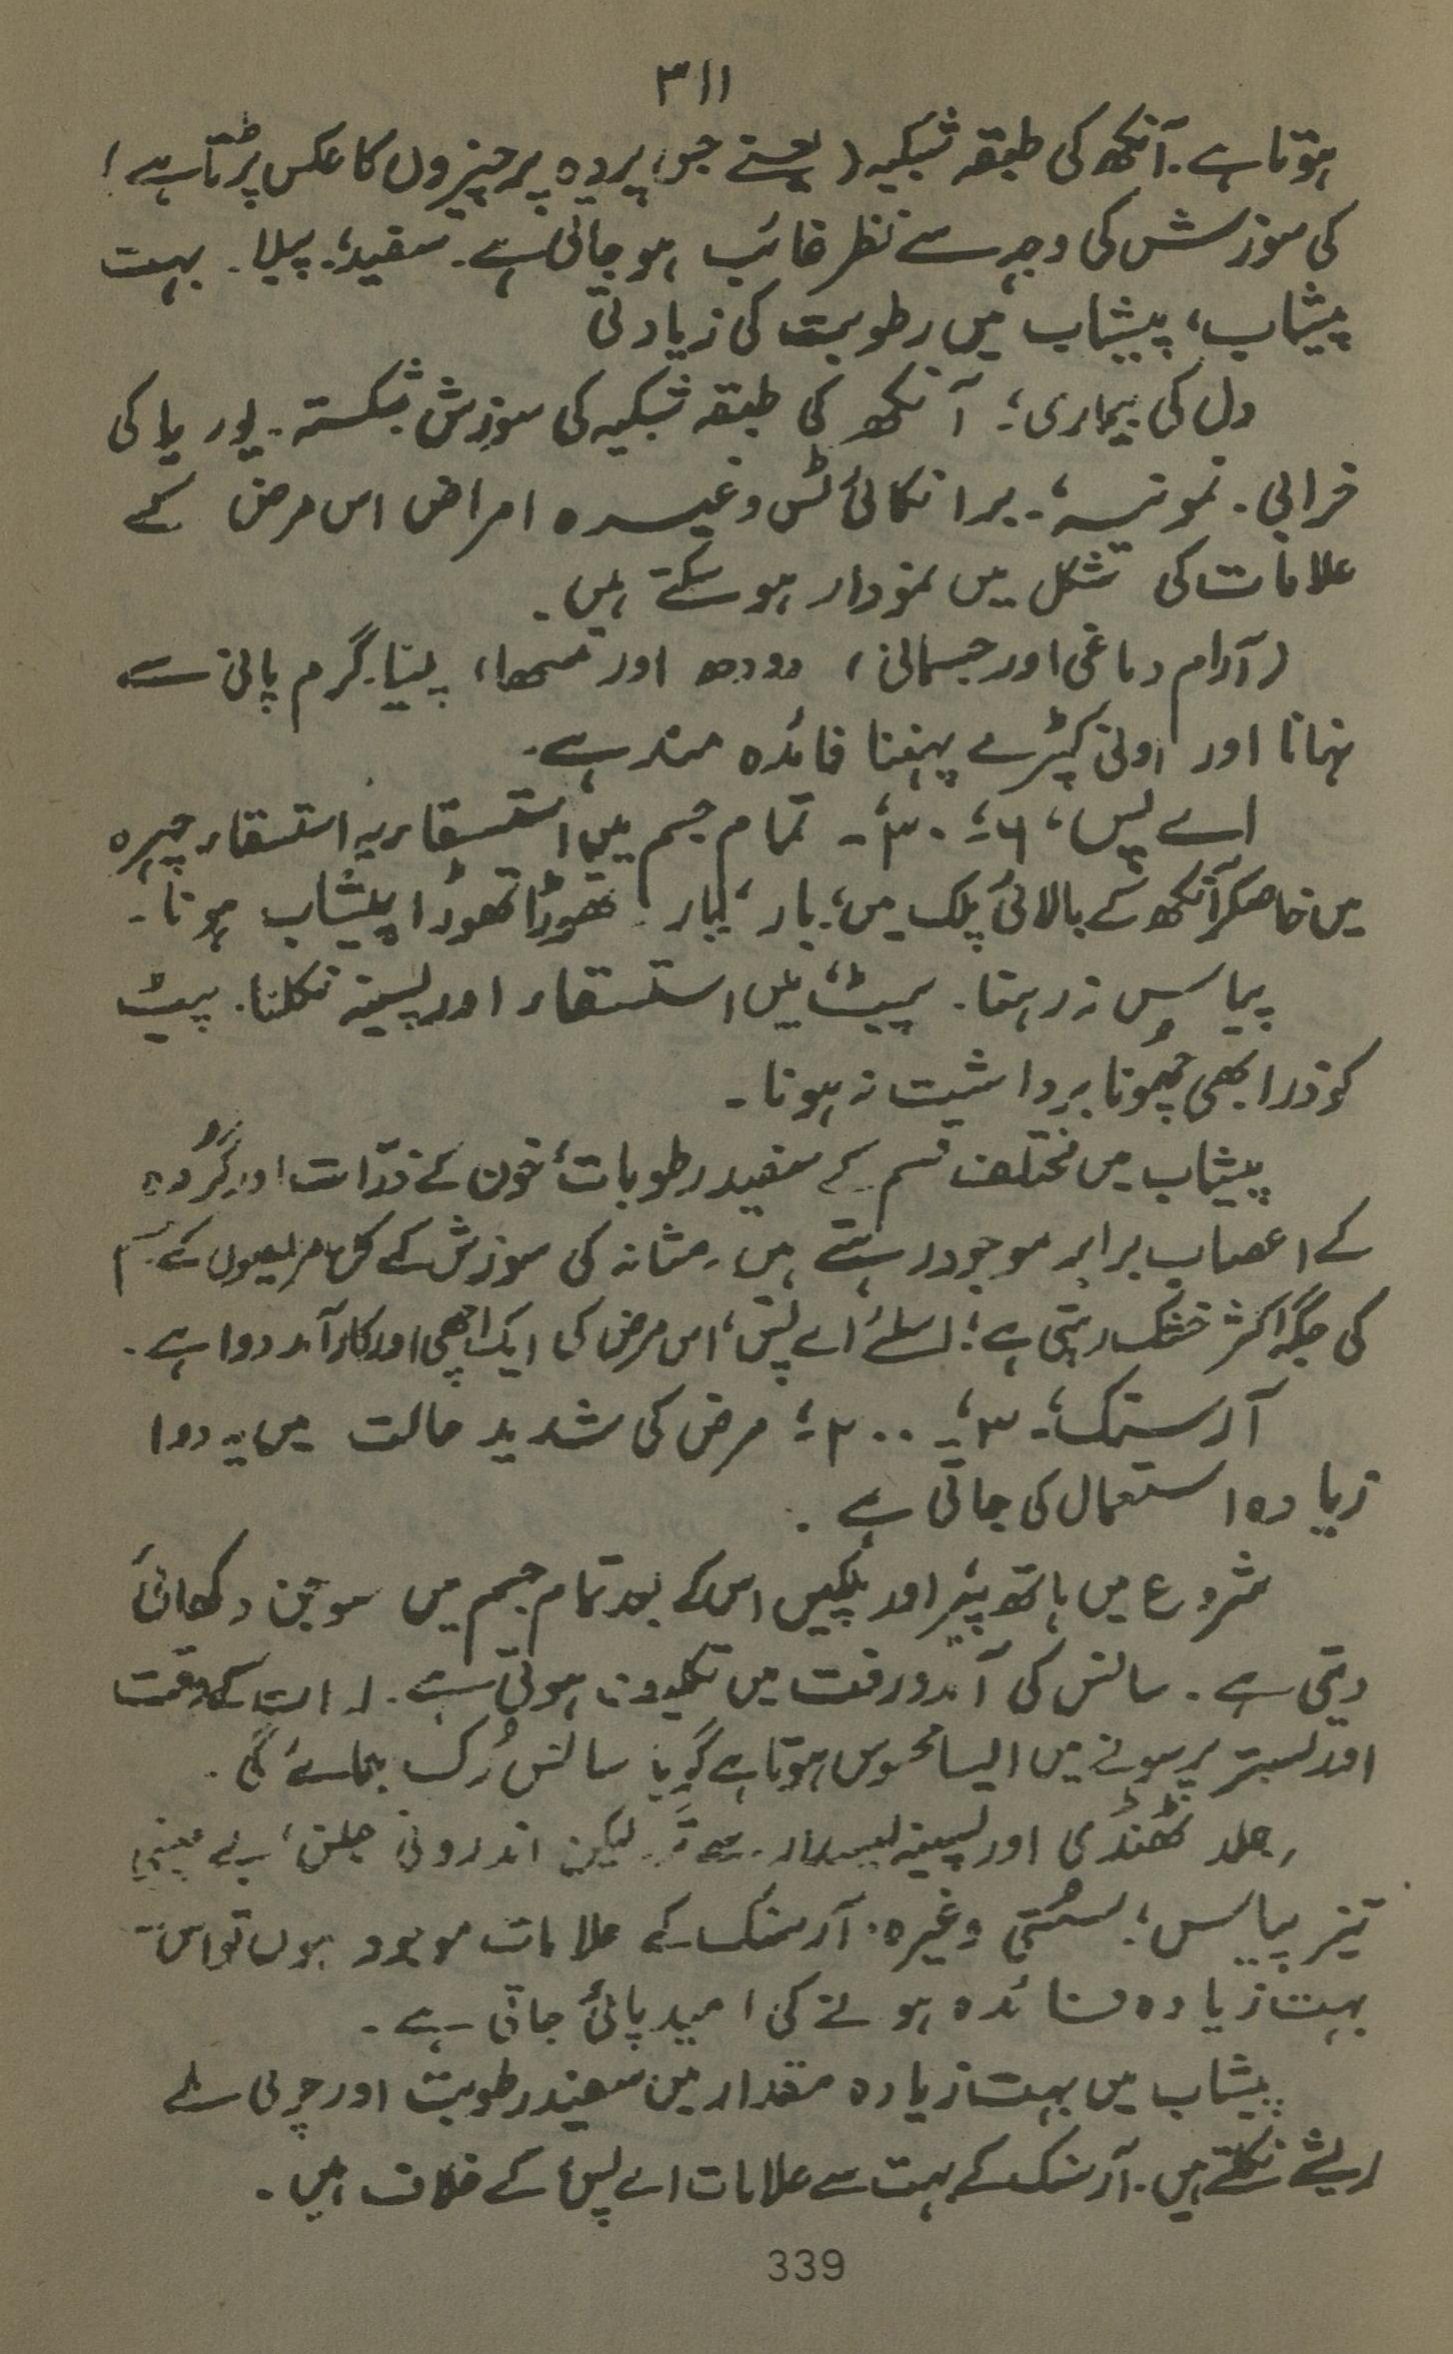 ۳۱۱
ہوتا ہے۔ آنکھ کی طبقہ شبکیہ (یعنے جس پردہ پر چیزوں کا عکس پڑتا ہے)
کی سوزش کی وجہ سے نظر غائب ہو جاتی ہے۔ سفید، پیلا۔ بہت
پیشاب، پیشاب میں رطوبت کی زیادتی
دل کی بیماری؛ آنکھ کی طبقہ شبکیہ کی سوزش شکستہ۔ یوریا کی
خرابی۔ نمونیہ، برانکائٹس وغیرہ امراض اس مرض کے
علامات کی شکل میں نمودار ہو سکتے ہیں۔
(آرام دماغی اور جسمانی) دودھ اور مٹھا، پینا۔ گرم پانی سے
نہانا اور اونی کپڑے پہننا فائدہ مند ہے۔
اے پس، ۶، ۳۰۔ تمام جسم میں استسقاء یہ استسقاء چہرہ
میں خاصکر آنکھ کے بالائی پلک میں، بار بار تھوڑا تھوڑا پیشاب ہونا۔
پیاس نہ رہنا۔ پیٹ میں استسقاء اور پسینہ نکلنا۔ پیٹ
کو ذرا بھی چھونا برداشت نہ ہونا۔
پیشاب میں مختلف قسم کے سفید رطوبات، خون کے ذرّات اور گُردہ
کے اعصاب برابر موجود رہتے ہیں۔ مثانہ کی سوزش کے کل مریضوں کے جسم
کی جگہ اکثر خشک رہتی ہے؛ اسلئے اے پس، اس مرض کی ایک اچھی اور کارآمد دوا ہے۔
آرسنک، ۳، ۲۰۰؛ مرض کی شدید حالت میں یہ دوا
زیادہ استعمال کی جاتی ہے۔
شروع میں ہاتھ پیر اور پلکیں اس کے بعد تمام جسم میں سوجن دکھائی
دیتی ہے۔ سانس کی آمدورفت میں تکلیف ہوتی ہے۔ رات کے وقت
اور بستر پر سونے میں ایسا محسوس ہوتا ہے گویا سانس رُک جائے گی۔
جلد ٹھنڈی اور پسینہ لیسدار لیکن اندرونی جلن، بے چینی
تیز پیاس؛ سُستی وغیرہ۔ آرسنک کے علامات موجود ہوں تو اس سے
بہت زیادہ فائدہ ہونے کی امید پائی جاتی ہے۔
پیشاب میں بہت زیادہ مقدار میں سفید رطوبت اور چربی ملے
ریشے نکلتے ہیں۔ آرسنک کے بہت سے علامات اے پس کے خلاف ہیں۔
339